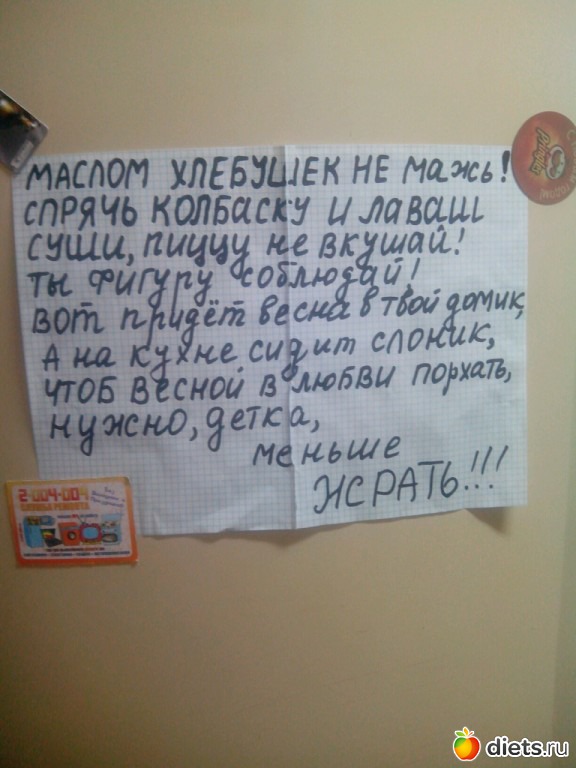 МАСЛОМ ХЛЕБУШЕК НЕ мажь!
СПРЯЧЬ КОЛБАСКУ И ЛАВАШ
СУШИ, ПИЦЦУ не вкушай!
ТЫ ФИГУРУ соблюдай!
ВОТ придёт весна в твой домик,
А на кухне сидит слоник,
чтоб весной в любви порхать,
нужно, детка,
меньше
ЖРАТЬ!!!
2-004-004
СЛУЖБА РЕМОНТА
diets.ru